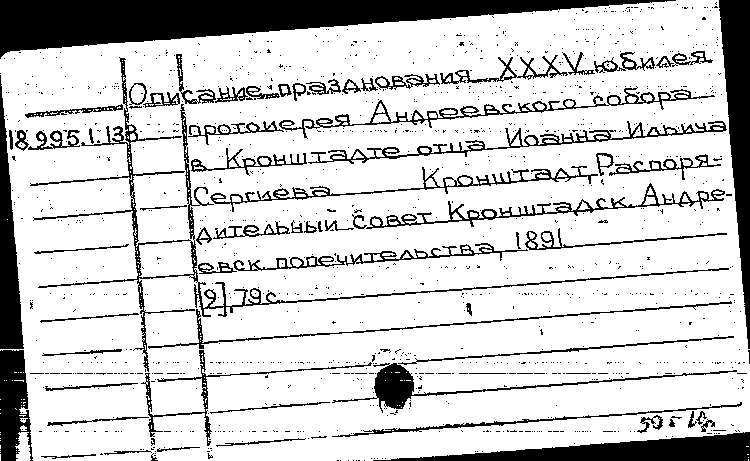 Описание празднования XXXV юбилея
18.995.1.138
протоиерея Андреевского собора
в Кронштадте отца Иоанна Ильича
Сергиева Кронштадт, Распоря-
дительный совет Кронштадск. Андре-
евск. попечительства, 1891.
[2], 79 с.